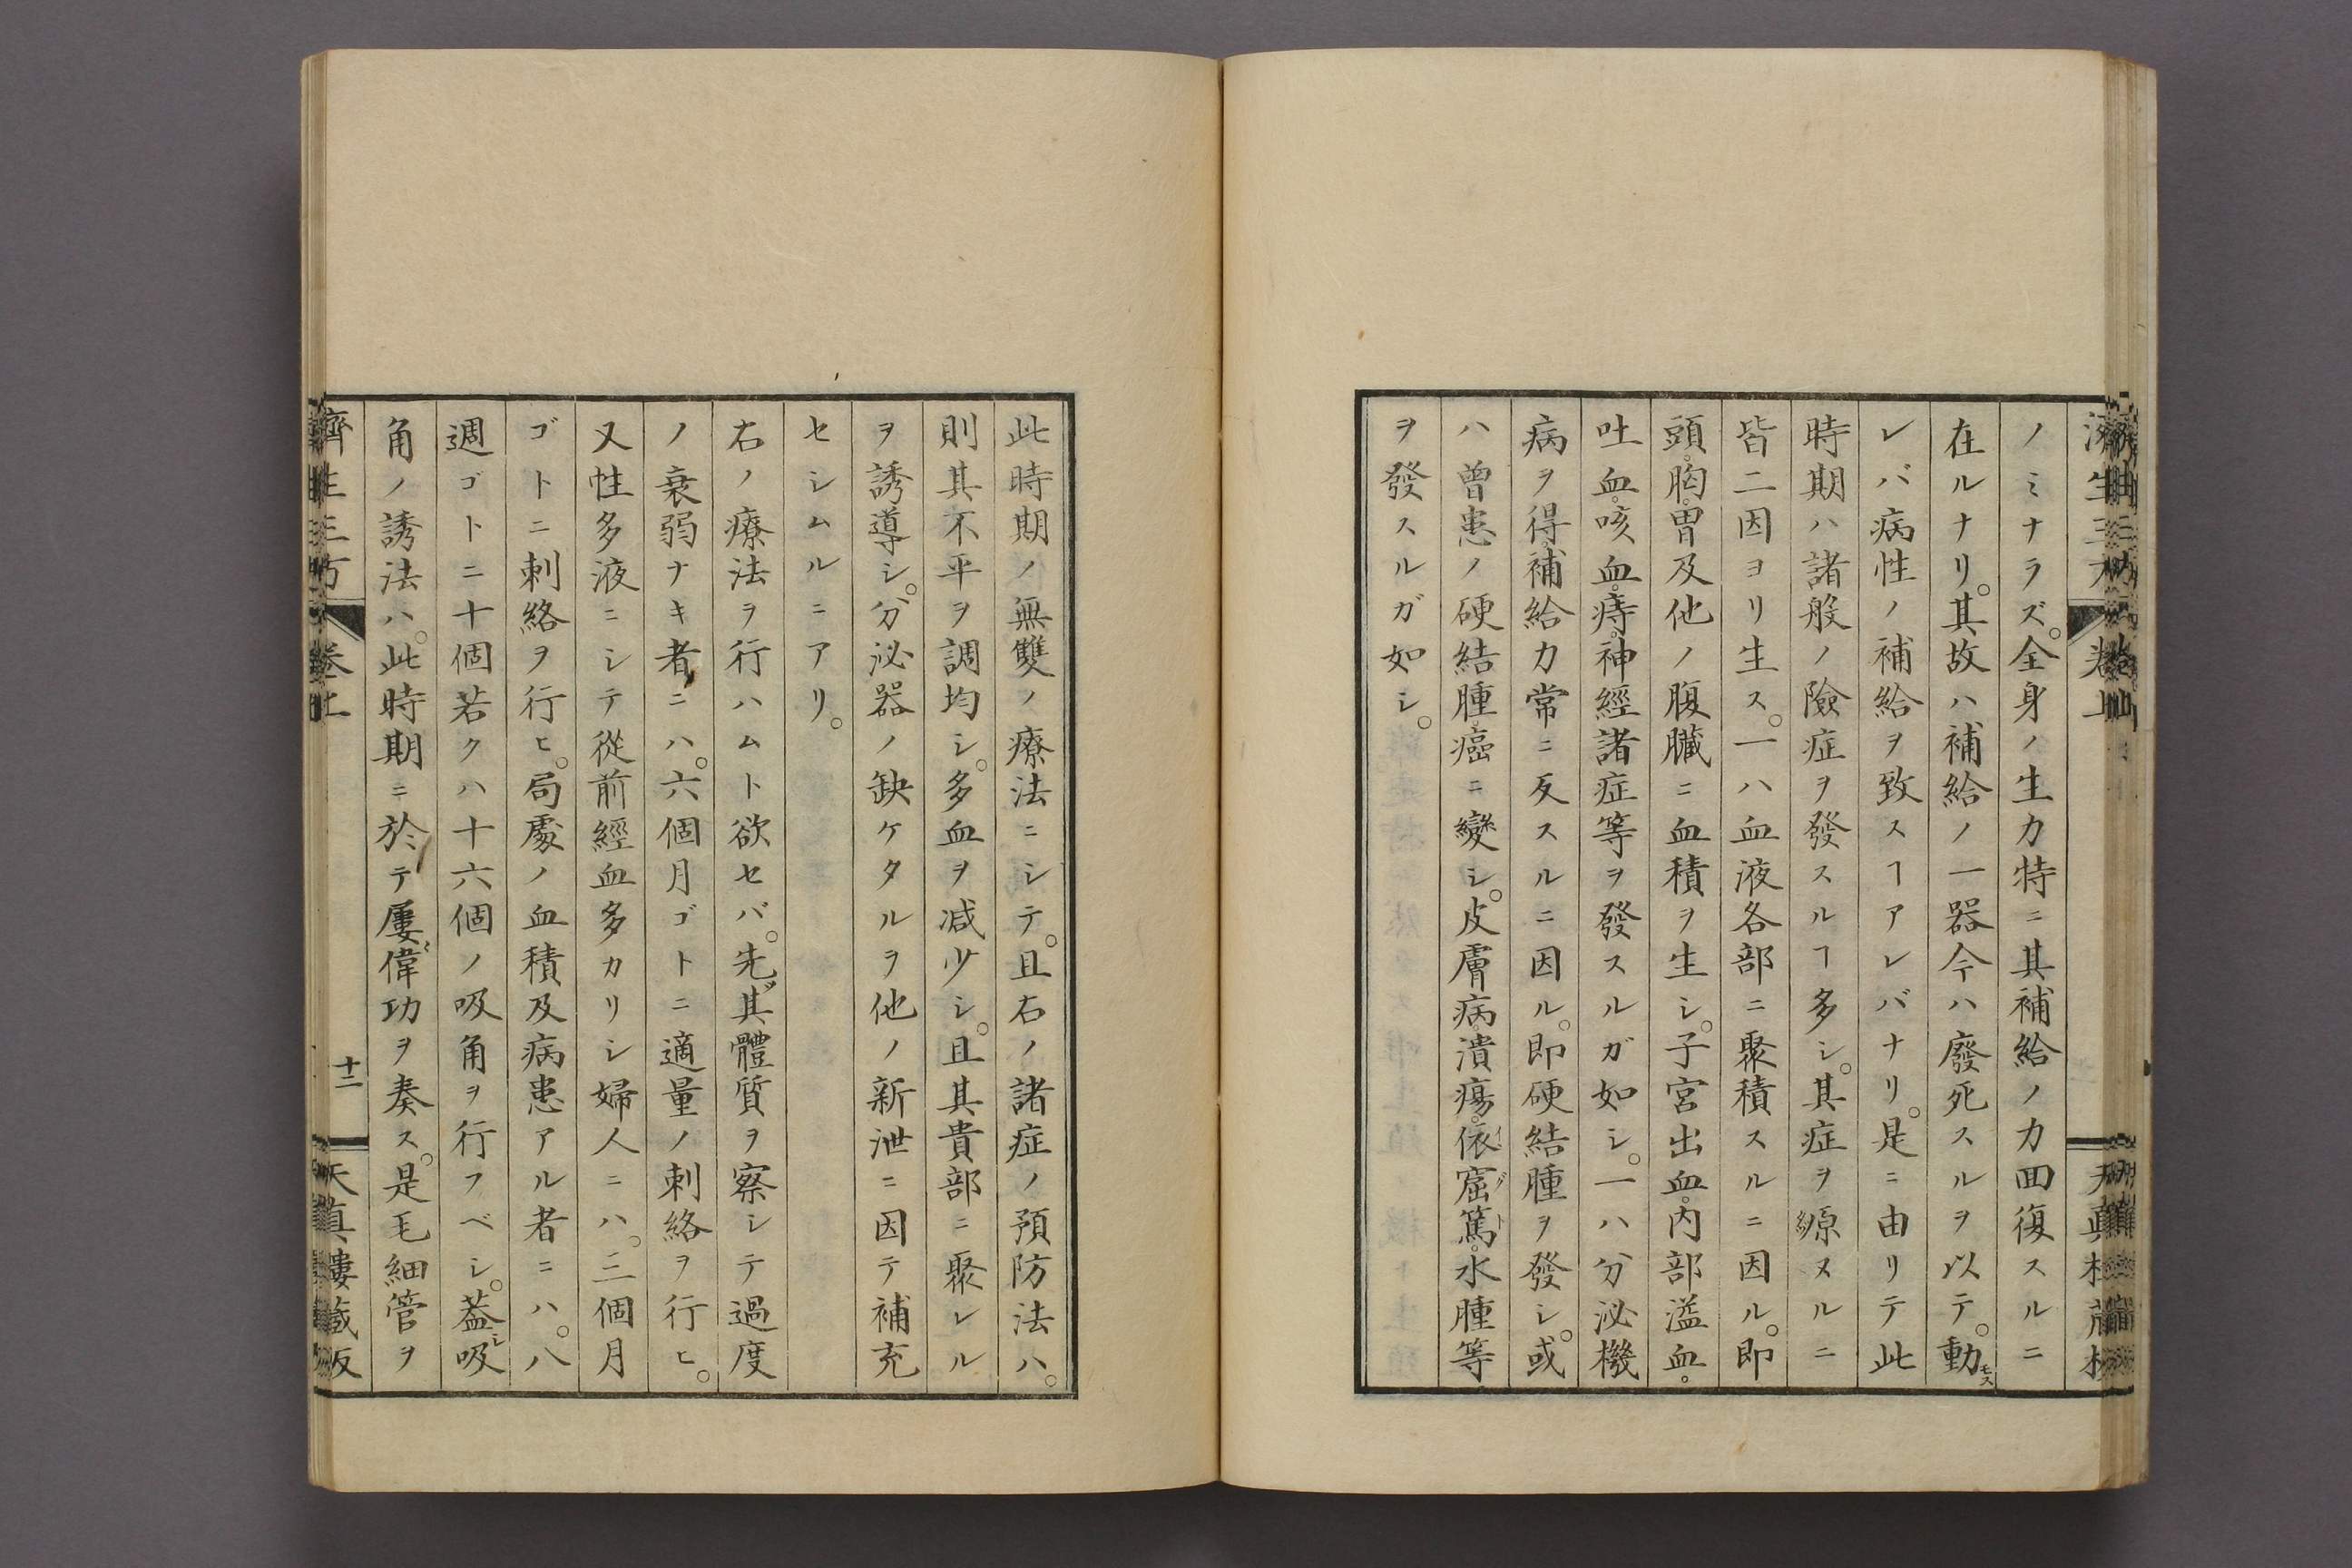 ノミナラズ。全身ノ生力特ニ其補給ノ力囬復スルニ
在ルナリ。其故ハ補給ノ一器今ハ廢死スルヲ以テ。動モス
レバ病性ノ補給ヲ致スヿアレバナリ。是ニ由リテ此
時期ハ諸般ノ險症ヲ發スルヿ多シ。其症ヲ縁ヌルニ
皆二因ヨリ生ス。一ハ血液各部ニ聚積スルニ因ル。即
頭。胸。胃及他ノ腹臓ニ血積ヲ生シ。子宮出血。内部溢血。
吐血。咳血。痔。神經諸症等ヲ發スルガ如シ。一ハ分泌機
病ヲ得。補給力常ニ反スルニ因ル。即硬結腫ヲ發シ。或
ハ曾患ノ硬結腫。癌ニ變シ。皮膚病。潰瘍。依窟篤。水腫等
ヲ發スルガ如シ。
此時期ノ無雙ノ療法ニシテ。且右ノ諸症ノ預防法ハ。
則其不平ヲ調均シ。多血ヲ减少シ。且其貴部ニ聚レル
ヲ誘導シ。分泌器ノ缺ケタルヲ他ノ新泄ニ因テ補充
セシムルニアリ。
右ノ療法ヲ行ハムト欲セバ。先ヅ其體質ヲ察シテ過度
ノ衰弱ナキ者ニハ。六個月ゴトニ適量ノ刺絡ヲ行ヒ。
又性多液ニシテ從前經血多カリシ婦人ニハ。三個月
ゴトニ刺絡ヲ行ヒ。局處ノ血積及病患アル者ニハ。八
週ゴトニ十個若クハ十六個ノ吸角ヲ行フベシ。蓋シ吸
角ノ誘法ハ。此時期ニ於テ屢〻偉功ヲ奏ス。是毛細管ヲ
濟生三方 卷上 十二 天眞樓藏版